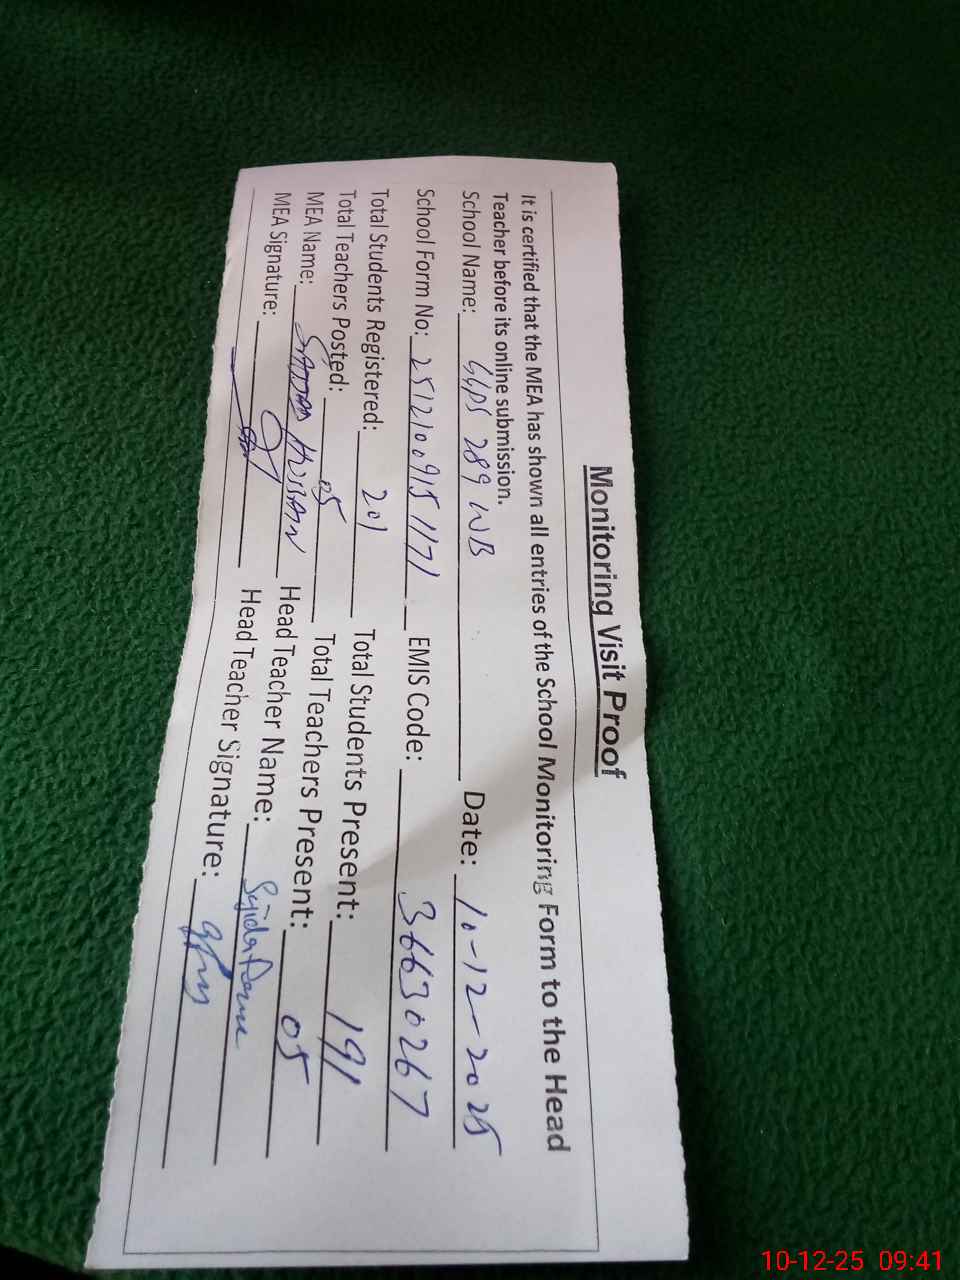 Monitoring Visit Proof
It is certified that the MEA has shown all entries of the School Monitoring Form to the Head
Teacher before its online submission.
School Name: GGPS 289 WB Date: 10-12-2025
School Form No: 25121009151171 EMIS Code: 36630267
Total Students Registered: 201 Total Students Present: 191
Total Teachers Posted: 05 Total Teachers Present: 05
MEA Name: SADDAM HUSSAIN Head Teacher Name: Sajida
MEA Signature: Head Teacher Signature:
10-12-25 09:41